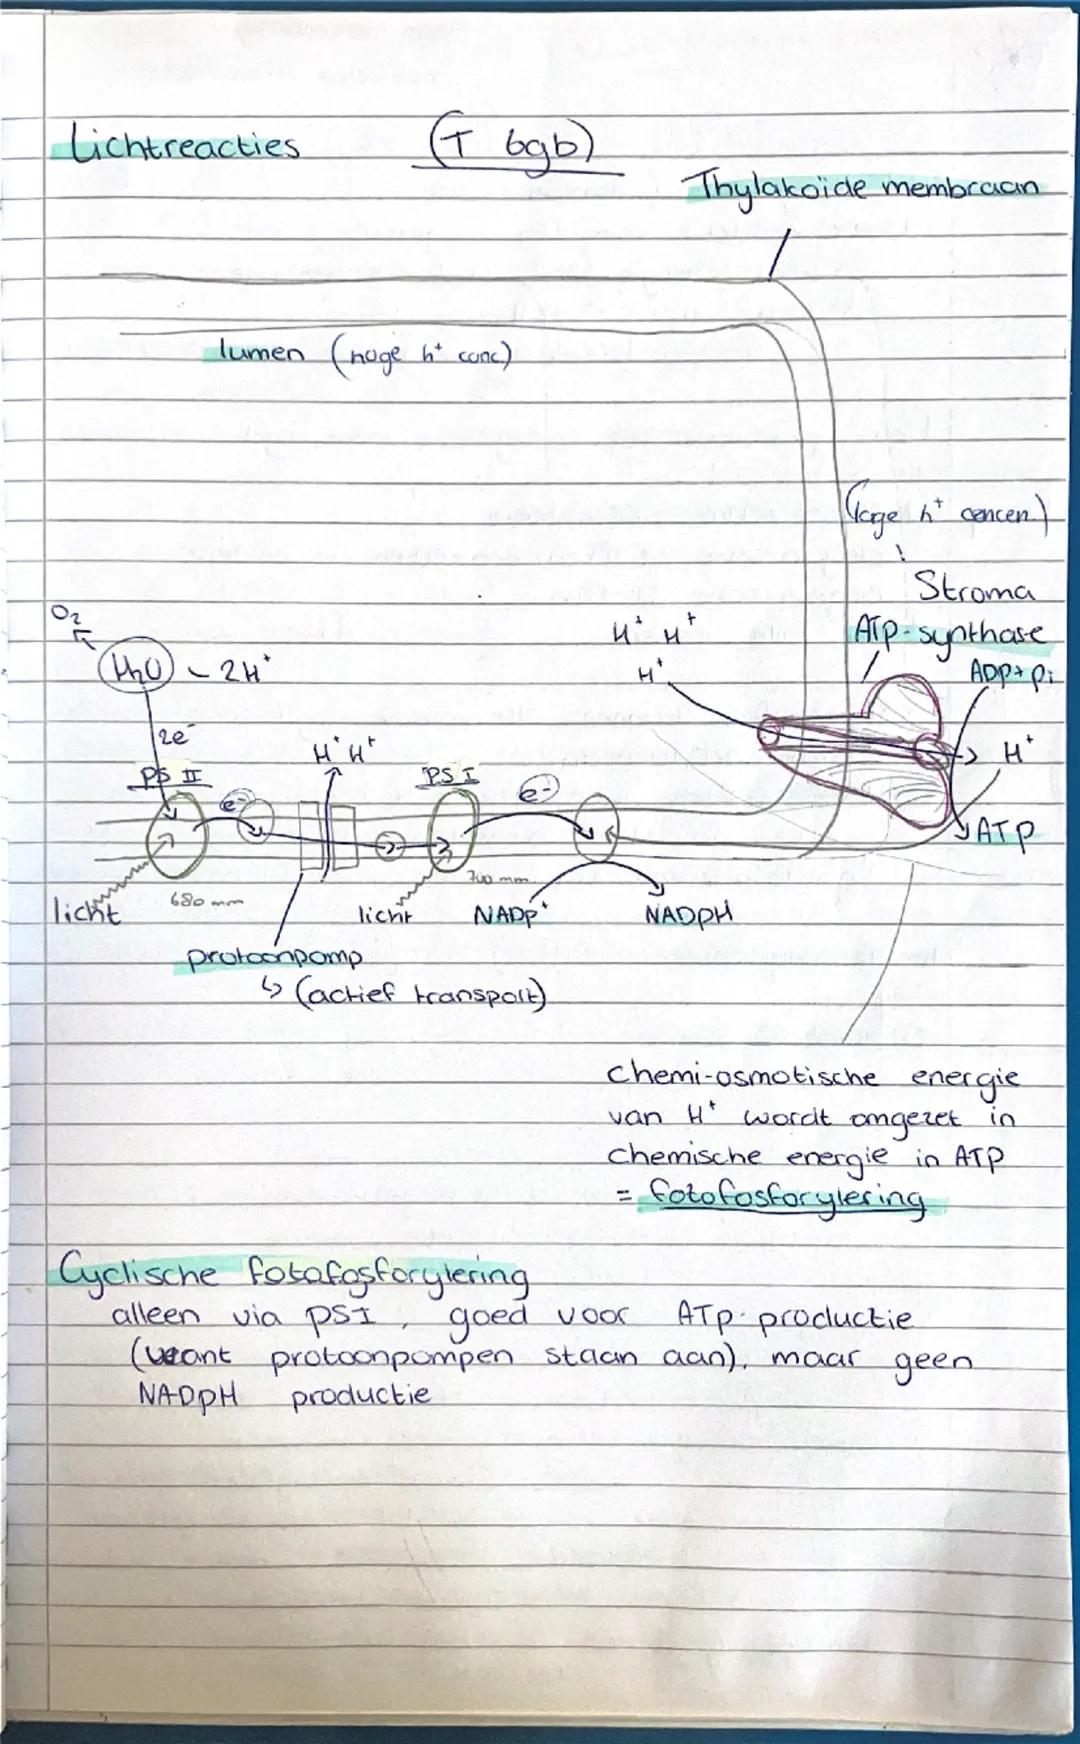 Lichtreacties (T 69b)
Thylakoïde membraan
lumen (hoge h⁺ conc)
(lage h⁺ concen.)
Stroma
O₂
H⁺ H⁺
ATP-synthase
H₂O - 2H⁺
H⁺
ADP + Pi
2e⁻
H⁺ H⁺
H⁺
PS II
PS I
e⁻
e⁻
ATP
680 mm
700 mm
licht
licht
NADP⁺
NADPH
protonpomp
↳ (actief transport)
chemi-osmotische energie
van H⁺ wordt omgezet in
chemische energie in ATP
= fotofosforylering
Cyclische fotofosforylering
alleen via PSI, goed voor ATP-productie
(want protonpompen staan aan), maar geen
NADPH productie